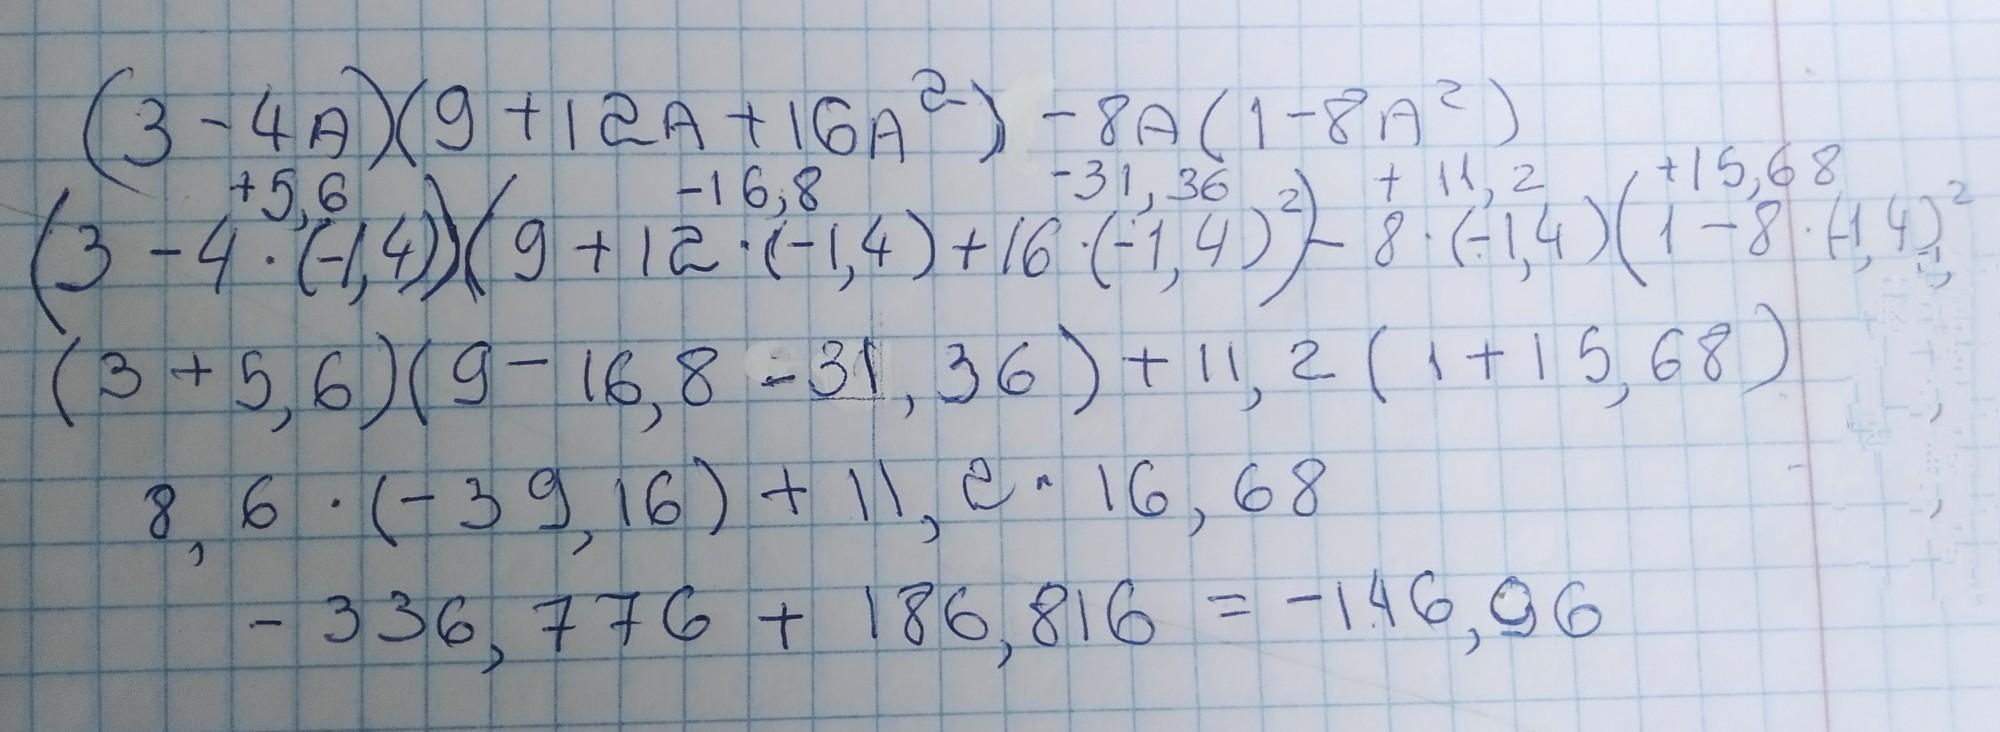 (3-4A)(9+12A+16A²)-8A(1-8A²)
+5,6 -16,8 -31,36 +11,2 +15,68
(3-4·(-1,4))(9+12·(-1,4)+16·(-1,4)²)-8·(-1,4)(1-8·(-1,4)²
(3+5,6)(9-16,8-31,36)+11,2(1+15,68)
8,6·(-39,16)+11,2·16,68
-336,776+186,816=-146,96